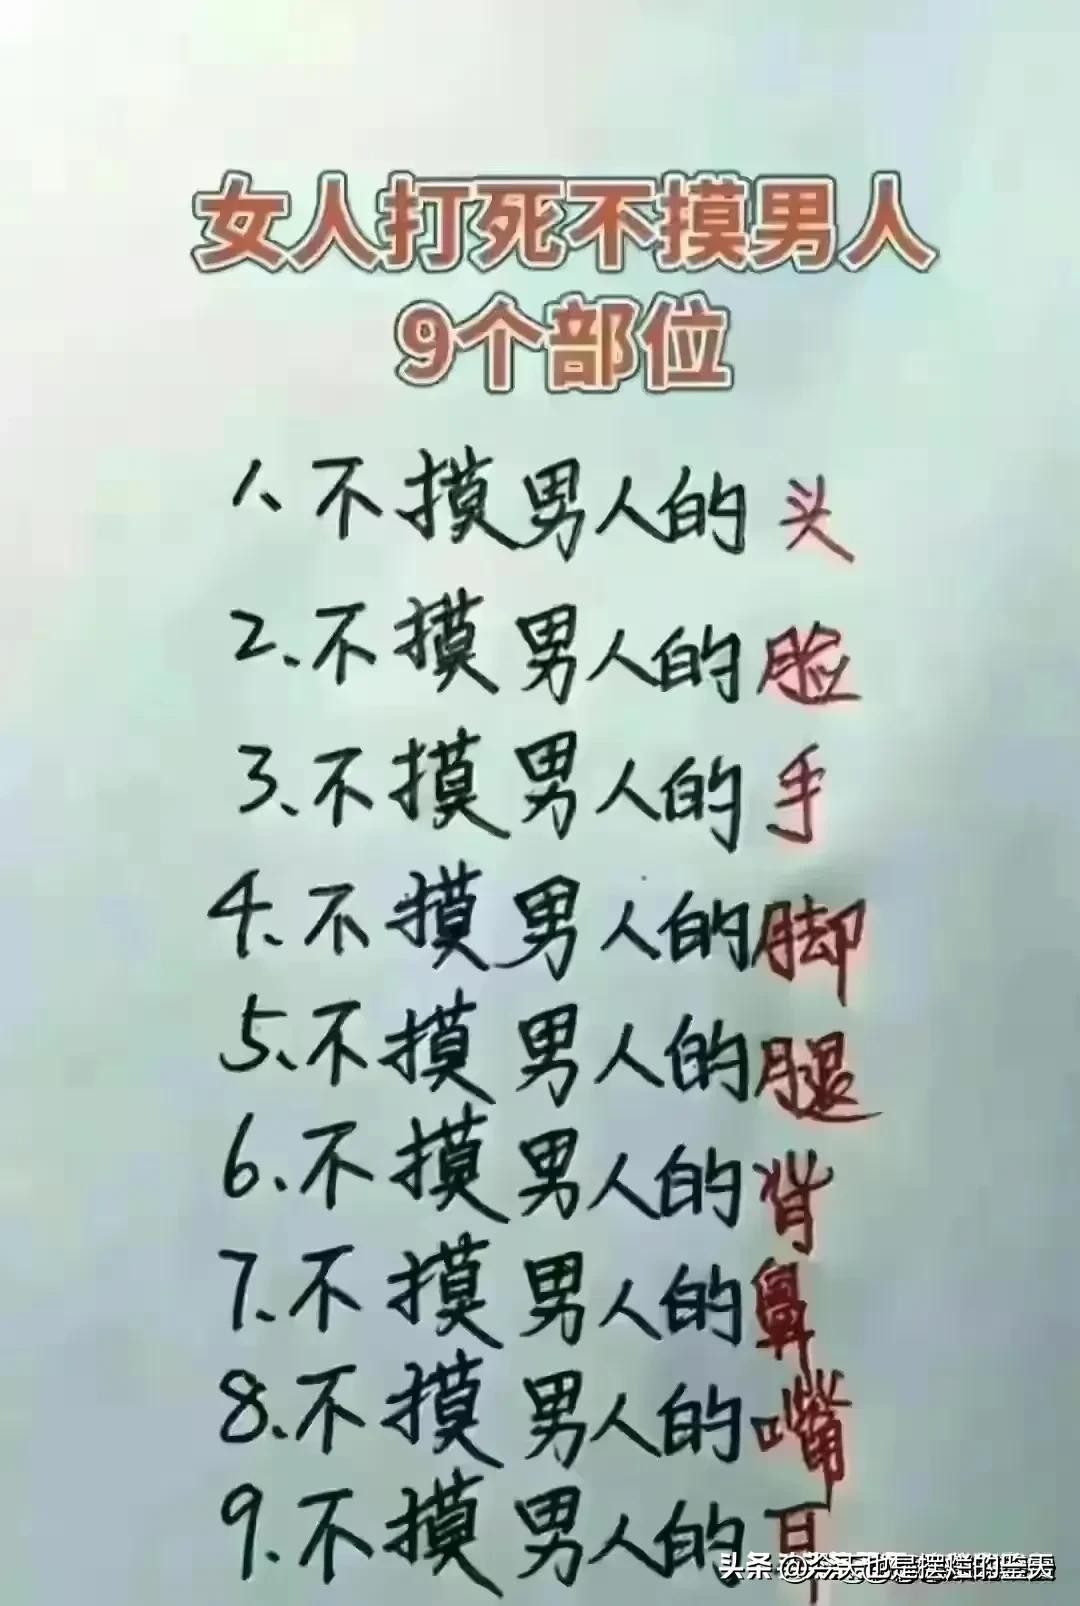 女人打死不摸男人
9个部位
1、不摸男人的头
2、不摸男人的脸
3、不摸男人的手
4、不摸男人的脚
5、不摸男人的腿
6、不摸男人的背
7、不摸男人的鼻
8、不摸男人的嘴
9、不摸男人的耳
头条 @今天也是摆烂的